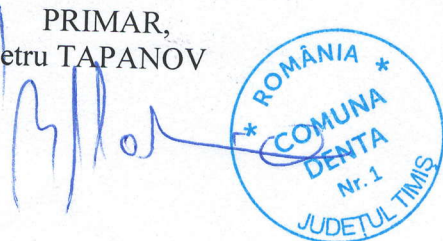 PRIMAR,
etru TAPANOV
* ROMÂNIA *
COMUNA
DENTA
Nr. 1
JUDEȚUL TIMIȘ